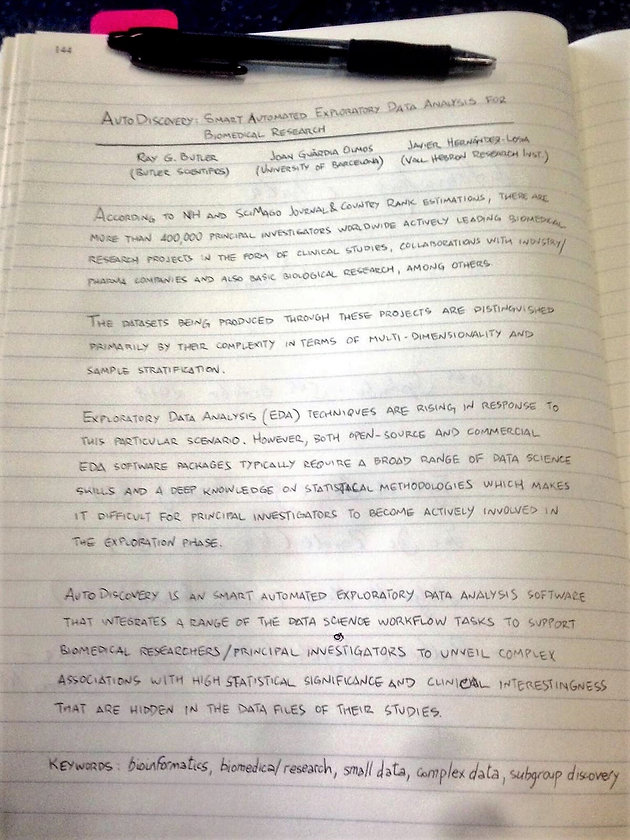 144
AUTODISCOVERY: SMART AUTOMATED EXPLORATORY DATA ANALYSIS FOR
BIOMEDICAL RESEARCH
RAY G. BUTLER JOAN GUÀRDIA OLMOS JAVIER HERNÁNDEZ-LOSA
(BUTLER SCIENTIFICS) (UNIVERSITY OF BARCELONA) (VALL HEBRON RESEARCH INST.)
ACCORDING TO NIH AND SCIMAGO JOURNAL & COUNTRY RANK ESTIMATIONS, THERE ARE
MORE THAN 400,000 PRINCIPAL INVESTIGATORS WORLDWIDE ACTIVELY LEADING BIOMEDICAL
RESEARCH PROJECTS IN THE FORM OF CLINICAL STUDIES, COLLABORATIONS WITH INDUSTRY/
PHARMA COMPANIES AND ALSO BASIC BIOLOGICAL RESEARCH, AMONG OTHERS.
THE DATASETS BEING PRODUCED THROUGH THESE PROJECTS ARE DISTINGUISHED
PRIMARILY BY THEIR COMPLEXITY IN TERMS OF MULTI-DIMENSIONALITY AND
SAMPLE STRATIFICATION.
EXPLORATORY DATA ANALYSIS (EDA) TECHNIQUES ARE RISING IN RESPONSE TO
THIS PARTICULAR SCENARIO. HOWEVER, BOTH OPEN-SOURCE AND COMMERCIAL
EDA SOFTWARE PACKAGES TYPICALLY REQUIRE A BROAD RANGE OF DATA SCIENCE
SKILLS AND A DEEP KNOWLEDGE ON STATISTACAL METHODOLOGIES WHICH MAKES
IT DIFFICULT FOR PRINCIPAL INVESTIGATORS TO BECOME ACTIVELY INVOLVED IN
THE EXPLORATION PHASE.
AUTODISCOVERY IS AN SMART AUTOMATED EXPLORATORY DATA ANALYSIS SOFTWARE
THAT INTEGRATES A RANGE OF THE DATA SCIENCE WORKFLOW TASKS TO SUPPORT
BIOMEDICAL RESEARCHERS/PRINCIPAL INVESTIGATORS TO UNVEIL COMPLEX
ASSOCIATIONS WITH HIGH STATISTICAL SIGNIFICANCE AND CLINICAL INTERESTINGNESS
THAT ARE HIDDEN IN THE DATA FILES OF THEIR STUDIES.
KEYWORDS: bioinformatics, biomedical research, small data, complex data, subgroup discovery